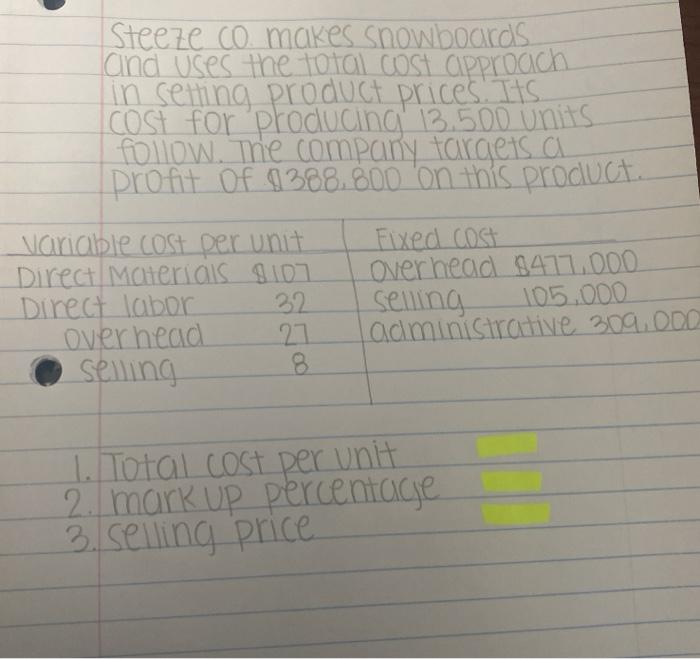 Steeze co. makes snowboards
and uses the total cost approach
in setting product prices. Its
cost for producing 13,500 units
follow. The company targets a
profit of $388,800 on this product.
variable cost per unit Fixed cost
Direct Materials $107 overhead $477,000
Direct labor 32 selling 105,000
overhead 27 administrative 309,000
selling 8
1. Total cost per unit
2. markup percentage
3. selling price